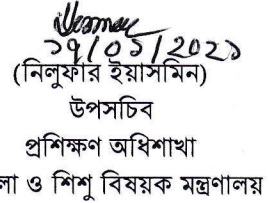 ১৭/০১/২০২১
(নিলুফার ইয়াসমিন)
উপসচিব
প্রশিক্ষণ অধিশাখা
ও শিশু বিষয়ক মন্ত্রণালয়